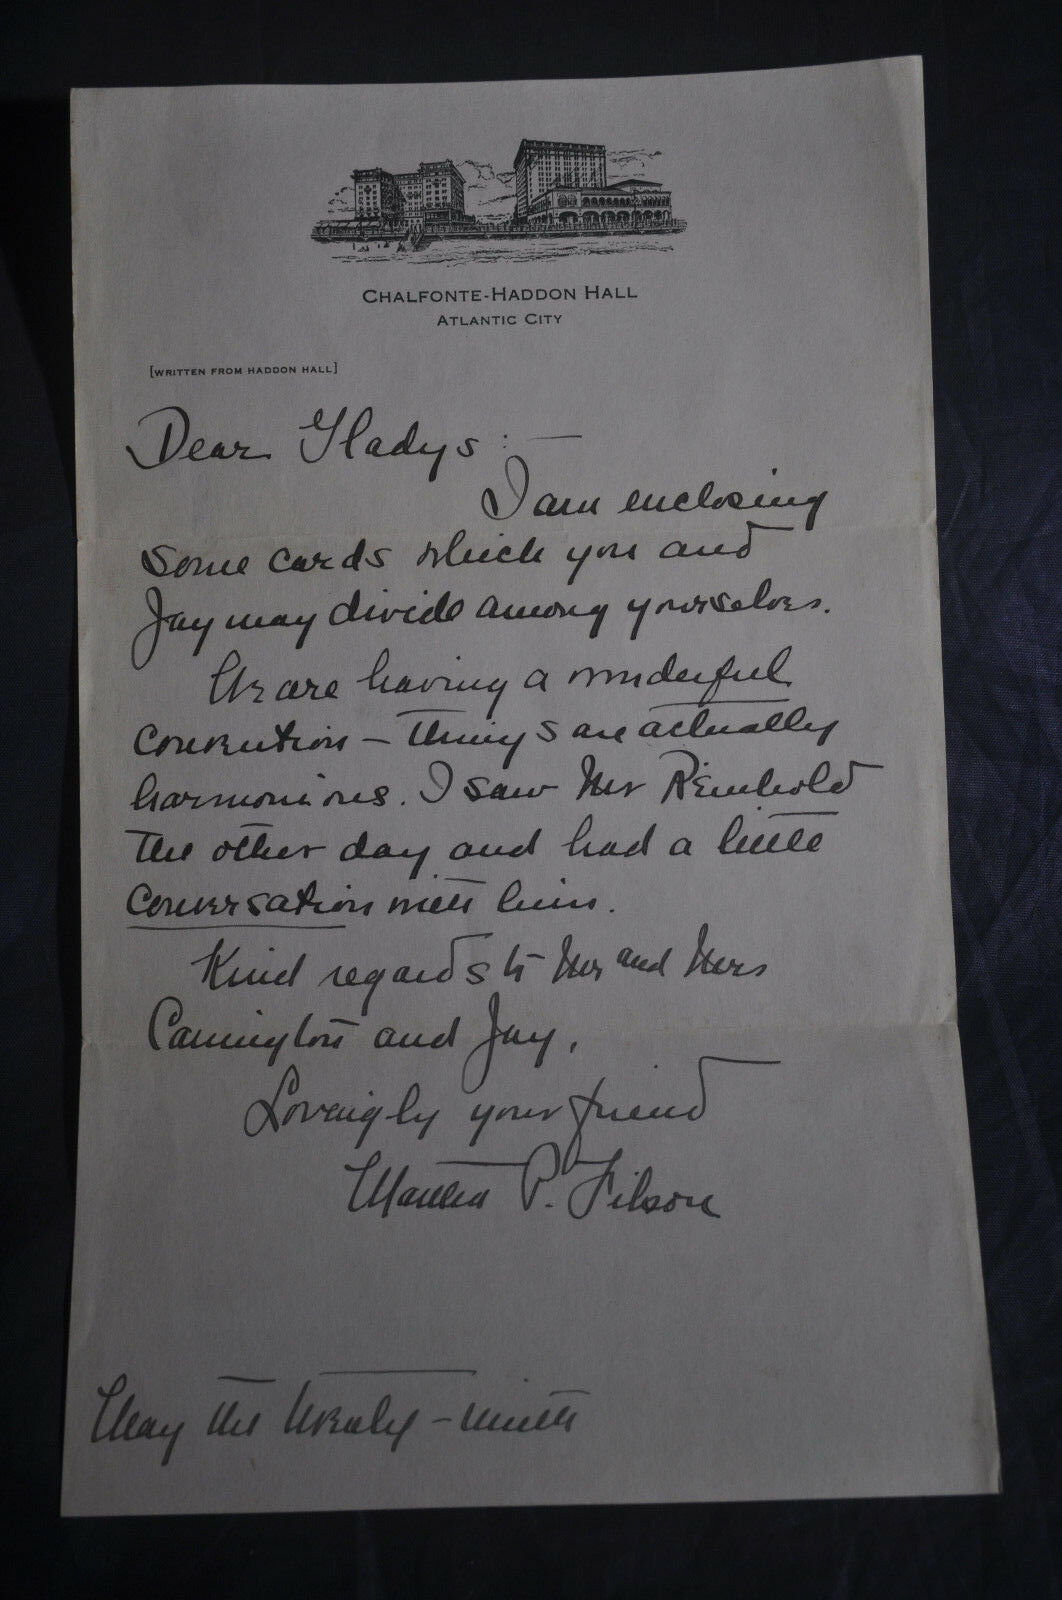 CHALFONTE-HADDON HALL
ATLANTIC CITY
[WRITTEN FROM HADDON HALL]
Dear Gladys : —
I am enclosing
some cards which you and
Jay may divide among yourselves.
We are having a wonderful
convention – things are actually
harmonious. I saw Mr Reinhold
the other day and had a little
conversation with him.
Kind regards to Mr and Mrs
Cannington and Jay,
Lovingly your friend
Martha P. Filson
May the twenty – ninth